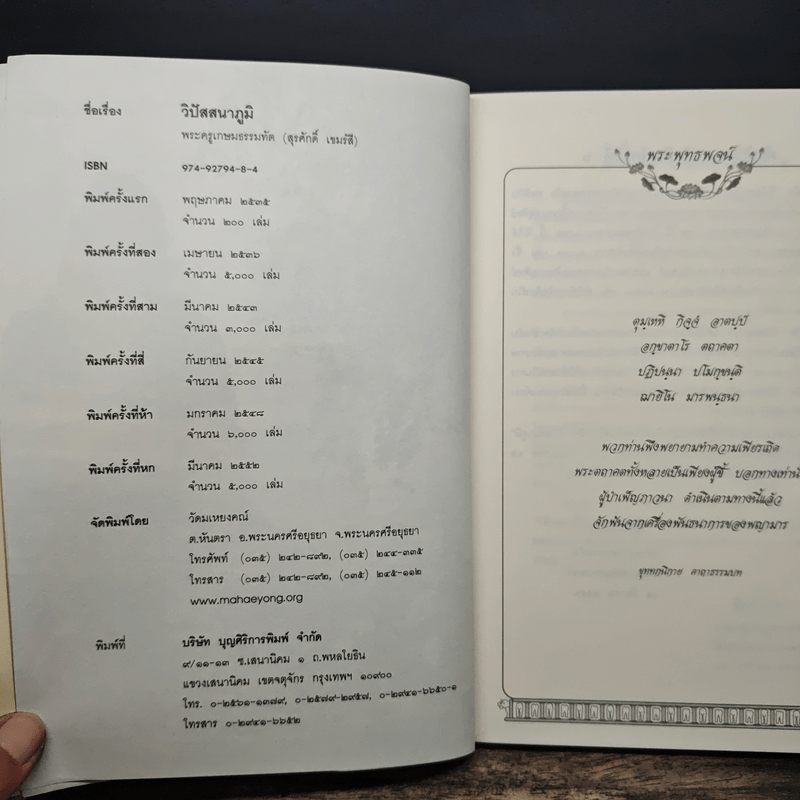 ชื่อเรื่อง วิปัสสนาภูมิ
พระครูเกษมธรรมทัต (สุรศักดิ์ เขมรํสี)
ISBN 974-92794-8-4
พิมพ์ครั้งแรก พฤษภาคม ๒๕๓๕
จำนวน ๒๐๐ เล่ม
พิมพ์ครั้งที่สอง เมษายน ๒๕๓๖
จำนวน ๕,๐๐๐ เล่ม
พิมพ์ครั้งที่สาม มีนาคม ๒๕๔๓
จำนวน ๓,๐๐๐ เล่ม
พิมพ์ครั้งที่สี่ กันยายน ๒๕๔๕
จำนวน ๕,๐๐๐ เล่ม
พิมพ์ครั้งที่ห้า มกราคม ๒๕๔๘
จำนวน ๖,๐๐๐ เล่ม
พิมพ์ครั้งที่หก มีนาคม ๒๕๕๒
จำนวน ๕,๐๐๐ เล่ม
จัดพิมพ์โดย วัดมเหยงคณ์
ต.หันตรา อ.พระนครศรีอยุธยา จ.พระนครศรีอยุธยา
โทรศัพท์ (๐๓๕) ๒๔๒-๘๙๒, (๐๓๕) ๒๔๔-๓๓๕
โทรสาร (๐๓๕) ๒๔๒-๘๙๒, (๐๓๕) ๒๔๕-๑๑๒
www.mahaeyong.org
พิมพ์ที่ บริษัท บุญศิริการพิมพ์ จำกัด
๙/๑๑-๑๓ ซ.เสนานิคม ๑ ถ.พหลโยธิน
แขวงเสนานิคม เขตจตุจักร กรุงเทพฯ ๑๐๙๐๐
โทร. ๐-๒๕๖๑-๑๓๗๙, ๐-๒๕๗๙-๒๙๕๗, ๐-๒๙๔๑-๖๖๕๐-๑
โทรสาร ๐-๒๙๔๑-๖๖๕๒
พระพุทธพจน์
ตุมฺเหหิ กิจฺจํ อาตปฺปํ
อกฺขาตาโร ตถาคตา
ปฏิปนฺนา ปโมกฺขนฺติ
ฌายิโน มารพนฺธนา
พวกท่านพึงพยายามทำความเพียรเถิด
พระตถาคตทั้งหลายเป็นเพียงผู้ชี้ บอกทางเท่านั้
ผู้บำเพ็ญภาวนา ดำเนินตามทางนี้แล้ว
จักพ้นจากเครื่องพันธนาการของพญามาร
ขุททกนิกาย คาถาธรรมบท